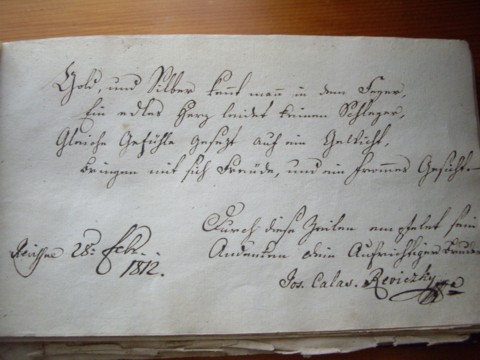 Gold, und Silber kennt mann in dem Feyer,
Ein edles Herz leidet keinen Schleyer,
Gleiche Gefühle gesezt auf ein
bringen mit sich Freude, und ein frommes Gesicht.
Durch diese Zeilen empfehlet sein
28: Feb. Andenken dein Aufrichtiger Bruder
1812.
Jos. Calas. Reviczky